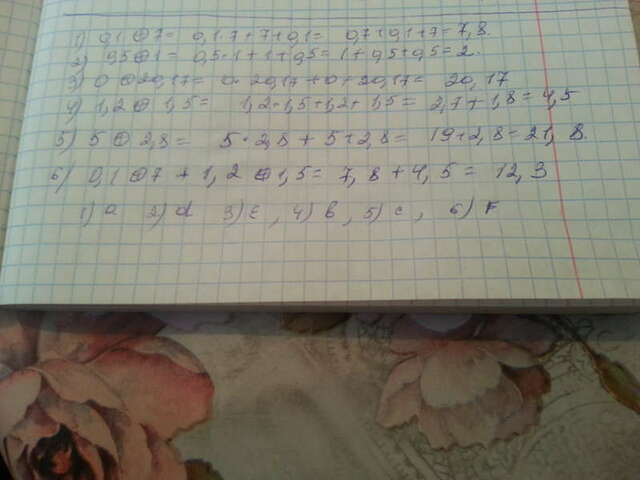 1) 0,1 ⊕ 7 = 0,1·7+7+0,1= 0,7+0,1+7=7,8.
2) 0,5⊕1= 0,5·1+1+0,5=1+0,5+0,5=2.
3) 0 ⊕20,17= 0·20,17+0+20,17= 20,17
4) 1,2⊕1,5= 1,2·1,5+1,2+1,5= 2,7+1,8=4,5
5) 5 ⊕ 2,8 = 5·2,8+5+2,8= 19+2,8=21,8.
6) 0,1⊕7 + 1,2⊕1,5= 7,8+4,5= 12,3
1) a 2) d 3) E, 4) b, 5) c, 6) F